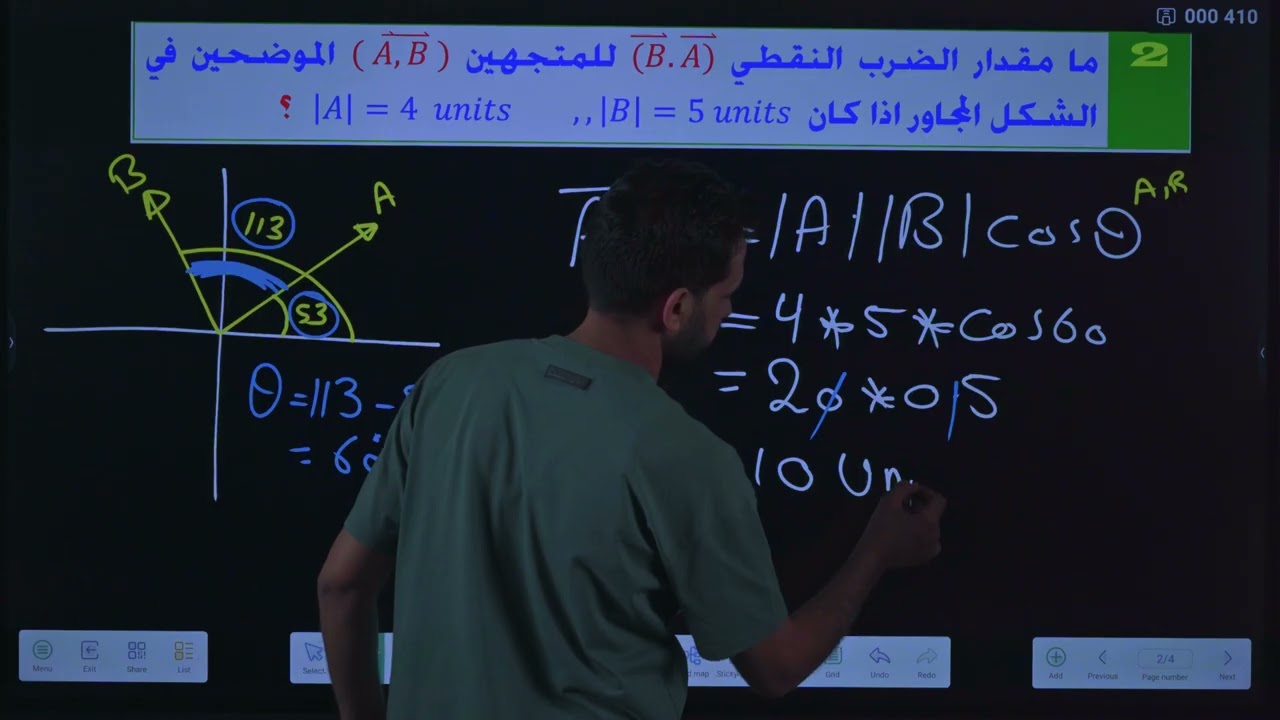 000 410
2
ما مقدار الضرب النقطي (B.A) للمتجهين (A,B) الموضحين في
الشكل المجاور اذا كان |B| = 5 units ,, |A| = 4 units ؟
B
A
113
53
θ=113 -
= 60
= |A||B| cosθ A,B
= 4*5*cos60
= 20*0,5
10
Menu
Exit
Share
List
Select
Grid
Undo
Redo
Add
Previous
2/4
Page number
Next